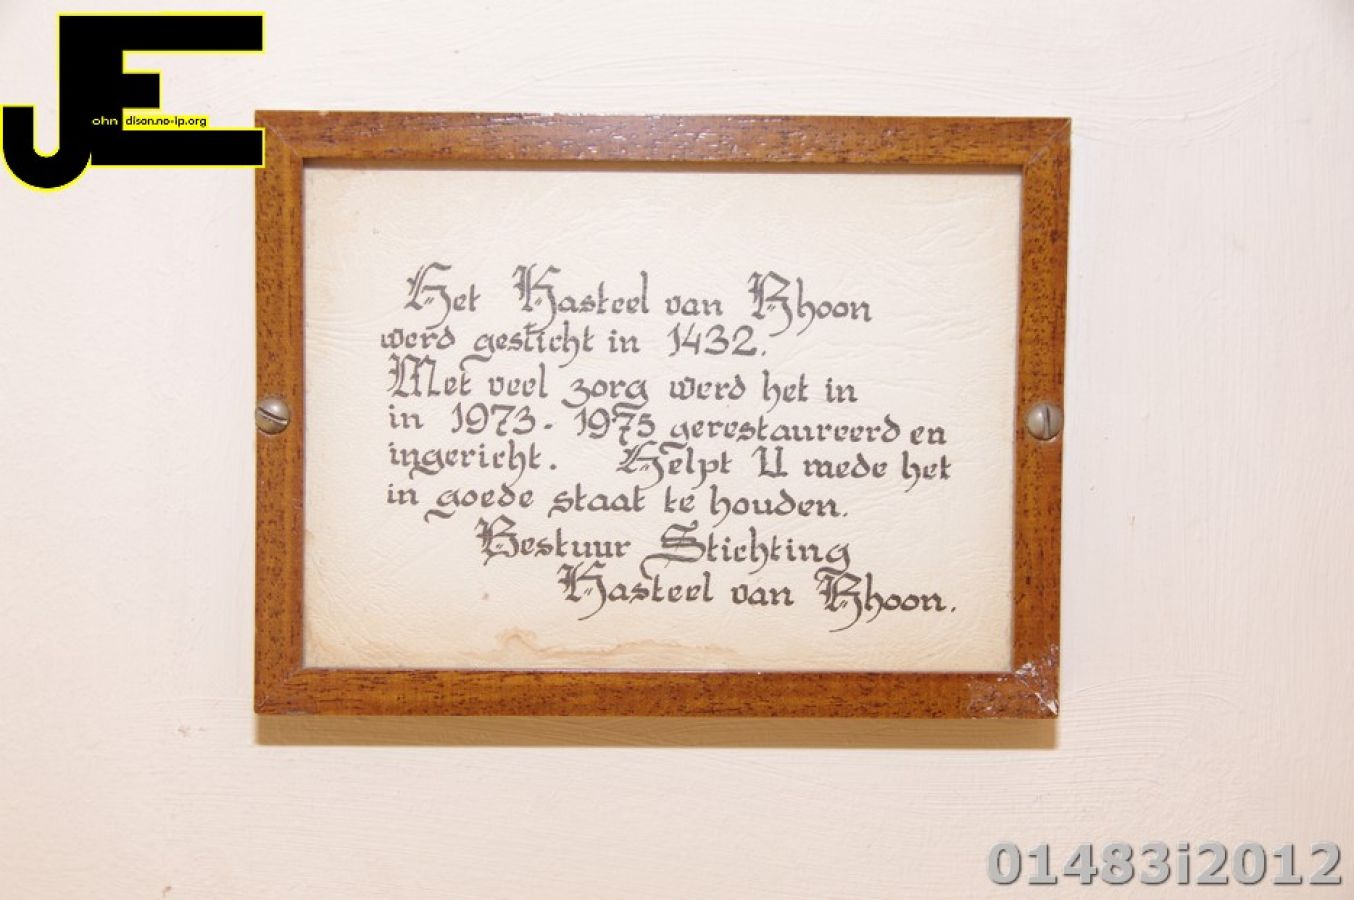 JE
ohn dison.no-ip.org
Het Kasteel van Rhoon
werd gesticht in 1432.
Met veel zorg werd het in
in 1973-1975 gerestaureerd en
ingericht. Helpt U mede het
in goede staat te houden.
Bestuur Stichting
Kasteel van Rhoon.
01483i2012